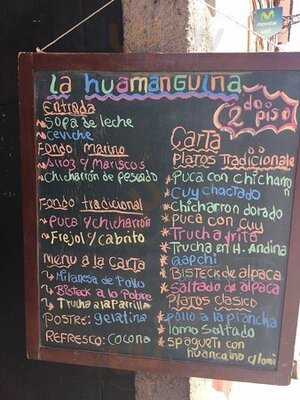 movistar
La Huamanguina
2do piso
Entrada
Sopa de leche
Ceviche
Fondo Marino
Arroz y Mariscos
Chicharrón de pescado
Fondo tradicional
Puca y chicharrón
Frejol y cabrito
Menú a la Carta
Milanesa de Pollo
Bisteck a lo Pobre
Trucha a la Parrilla
Postre: gelatina
Refresco: Cocona
Carta
Platos Tradicionale
Puca con Chicharron
Cuy chactado
Chicharron dorado
puca con cuy
Trucha frita
Trucha en H. Andina
Qapchi
Bisteck de alpaca
Saltado de alpaca
Platos Clasico
pollo a la plancha
lomo saltado
spagueti con
huancaina c/lomi